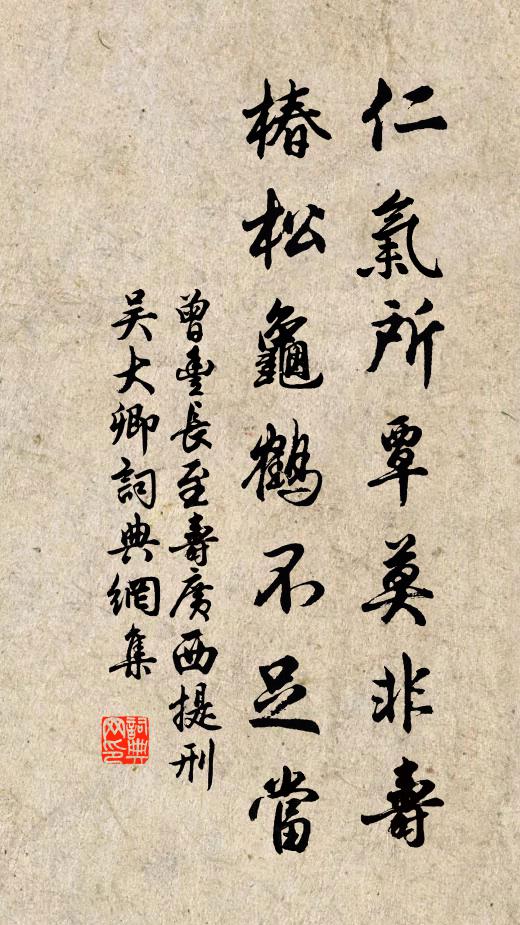 仁氣所覃莫非壽
椿松龜鶴不足當
曾豊長至壽廣西提刑
吴大卿詞典網集
詞典
网印